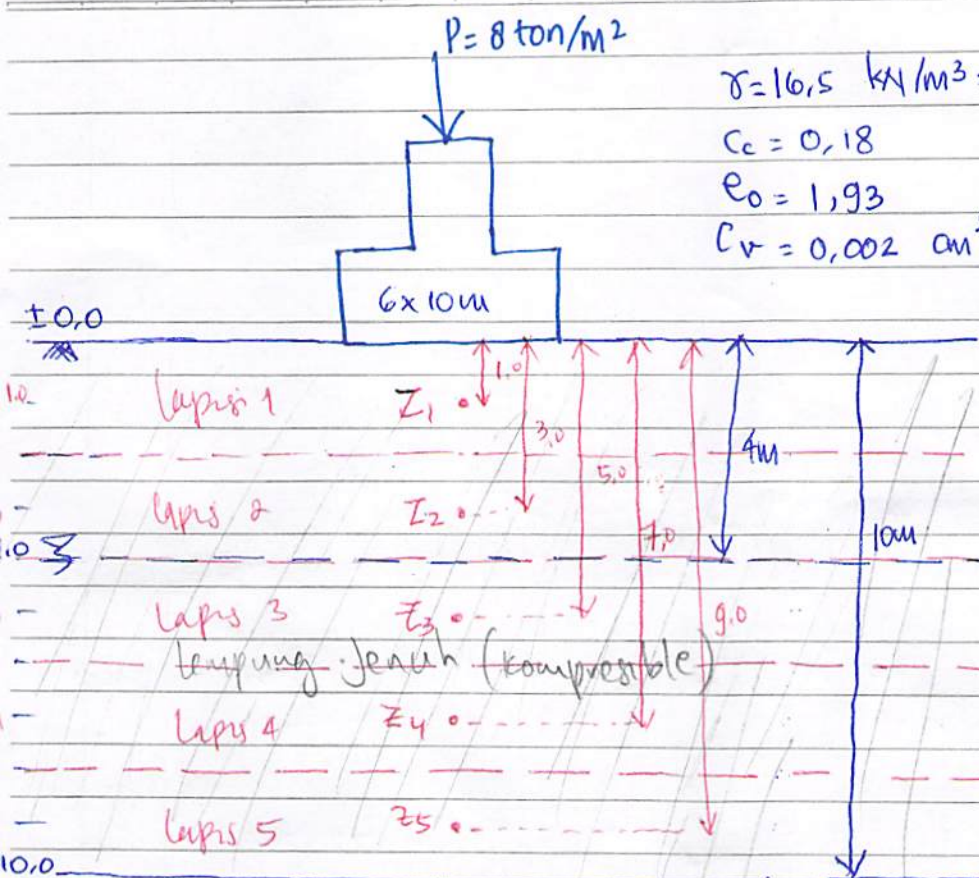 P = 8 ton/m²
γ = 16,5 kN/m³ =
Cc = 0,18
e₀ = 1,93
Cv = 0,002 cm²
6 x 10 m
± 0,0
1.0
lapis 1
Z₁
1.0
3,0
5,0
7,0
9.0
4m
10m
lapis 2
Z₂
.0
lapis 3
Z₃
lempung jenuh (kompresible)
lapis 4
Z₄
lapis 5
Z₅
10,0